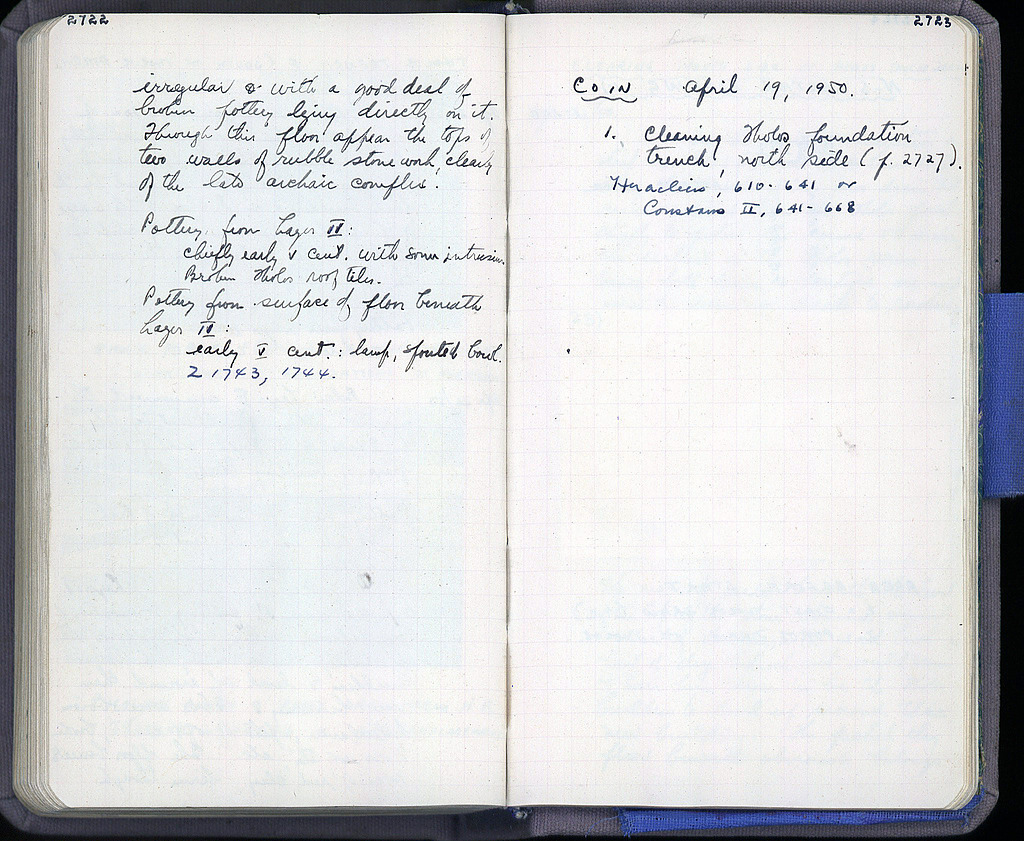 2722
irregular & with a good deal of
broken pottery lying directly on it.
Through this floor appear the tops of
two walls of rubble stone work, clearly
of the late archaic complex.
Pottery from Layer III:
chiefly early V cent. with some intrusion.
Broken Tholos roof tiles.
Pottery from surface of floor beneath
Layer IV:
early V cent.: lamp, spouted bowl.
Σ 1743, 1744.
2723
COIN April 19, 1950.
1. Cleaning Tholos foundation
trench, north side (p. 2727).
Heraclius, 610-641 or
Constans II, 641-668